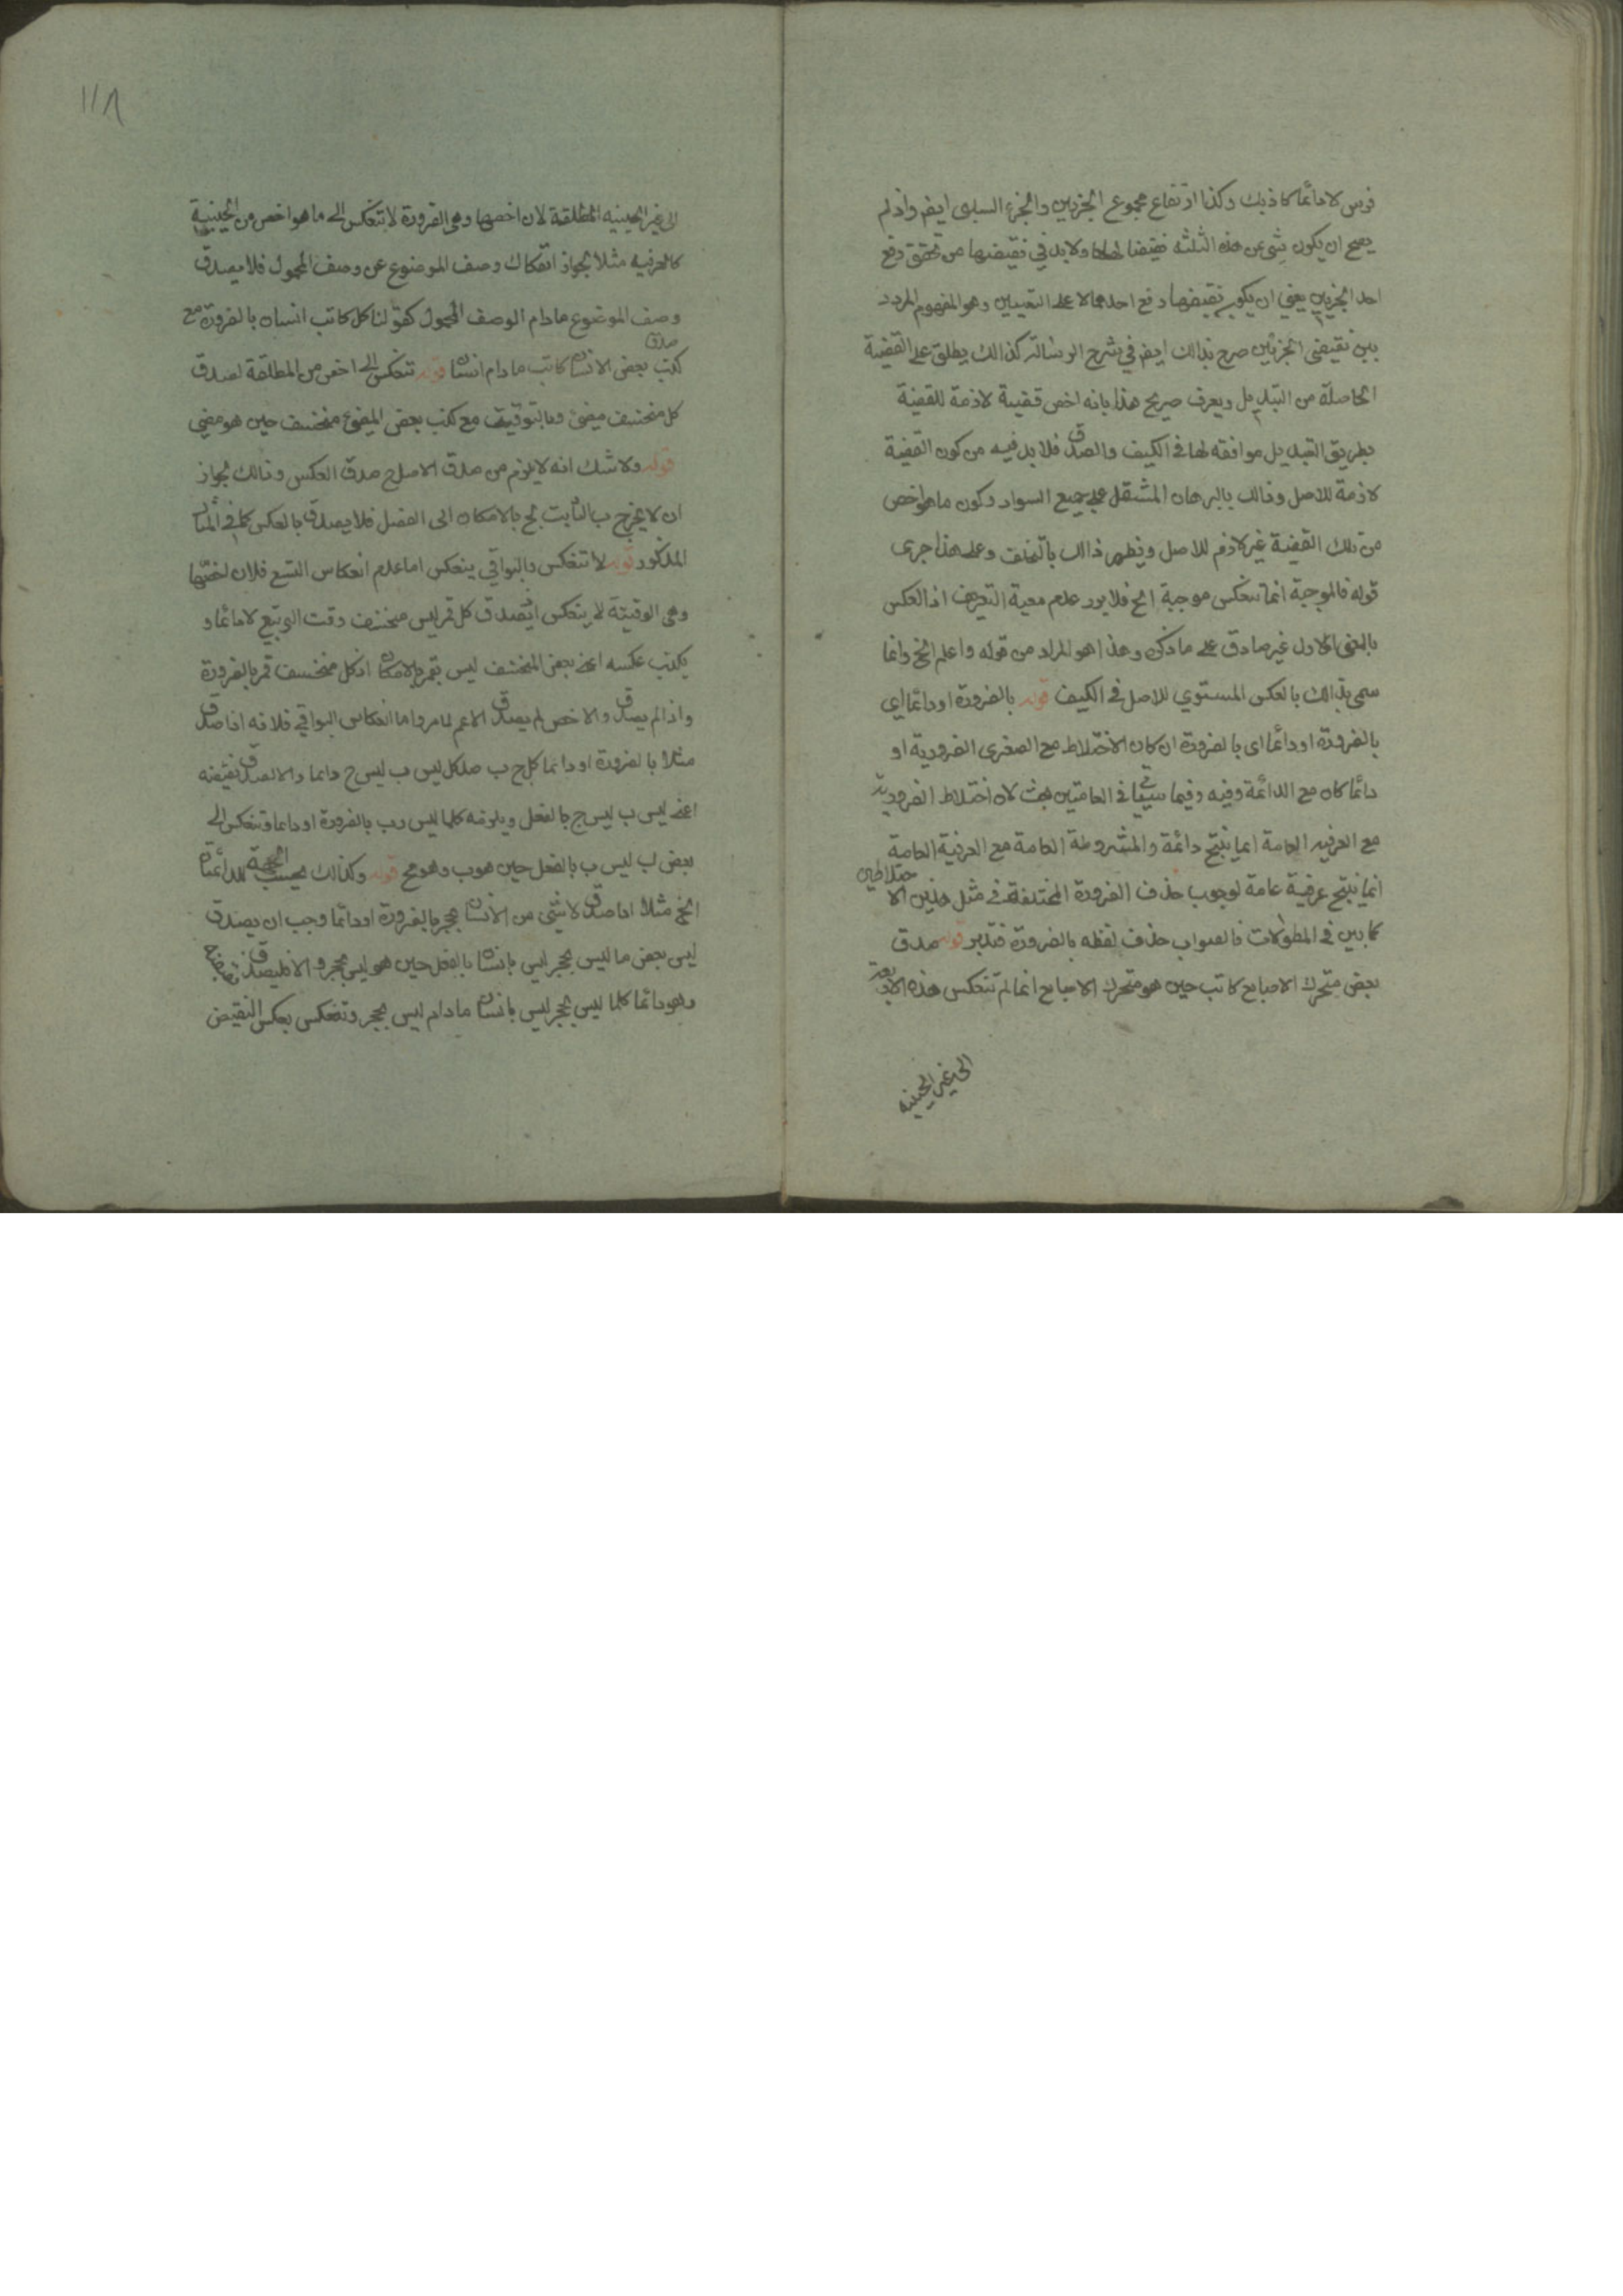 فرس لا دائما كاذبك وكذا ارتفاع مجموع الجزئين والجزء السلبى ايضا واذ لم
يصح ان يكون شئ من هذه الثلثة نقيضا لها ولابد في نقيضها من تحقق رفع
احد الجزئين يعني ان يكون نقيضها رفع احدهما لا على التعيين وهو المفهوم المردد
بين نقيضي الجزئين صرح بذالك ايضا في شرح الرسالة كذالك يطلق على القضية
الحاصلة من التبديل ويعرف صريح هذا بانه اخص قضية لازمة للقضية
بطريق التبديل موافقه لها في الكيف والصدق فلا بد فيه من كون القضية
لازمة للاصل وذالك بالبرهان المشتمل على جميع المواد وكون ما هو اخص
من تلك القضية غير لازم للاصل ويظهر ذالك بالتخلف وعلى هذا جرى
قوله فالموجبة انما تنعكس موجبة الخ فلا يرد عدم معية التعريف اذ العكس
بالمعنى الاول غير صادق على ما ذكر وهذا هو المراد من قوله واعلم الخ وانما
سمى بذالك بالعكس المستوي للاصل في الكيف قوله بالضرورة او دائما اي
بالضرورة او دائما اى بالضرورة ان كان الاختلاط مع الصغرى الضرورية او
دائما كان مع الدائمة وفيه وفيما سيأتي في العامتين بحث لان اختلاط الضرورية
مع العرفيه العامة انما ينتج دائمة والمشروطة العامة مع العرفية العامة
انما ينتج عرفية عامة لوجوب حذف الضرورة المختلفة في مثل هذين الاختلاطين
كما بين في المطولات فالصواب حذف لفظه بالضرورة فتدبر قوله صدق
بعض متحرك الاصابع كاتب حين هو متحرك الاصابع انما لم تنعكس هذه الاربعة
الى غير الحينيه
١١٨
الى غير الحينيه المطلقة لان اخصها وهى الضرورة لا تنعكس الى ما هو اخص من الحينية
كالعرفيه مثلا لجواز انفكاك وصف الموضوع عن وصف المحمول فلا يصدق
وصف الموضوع مادام الوصف المحمول كقولنا كل كاتب انسان بالضرورة مع
صدق
كذب بعض الانسان كاتب مادام انسانا قوله تنعكس الى اخص من المطلقة لصدق
كل منخسف مضئ وبالتوقيت مع كذب بعض المضئ منخسف حين هو مضئ
قوله ولا شك انه لا يلزم من صدق الاصل ح صدق العكس وذالك لجواز
ان لا يخرج ب الثابت لج بالامكان الى الفعل فلا يصدق بالعكس كما في المثال
المذكور قوله لا تنعكس والبواقي ينعكس اما عدم انعكاس التسع فلان اخصها
وهى الوقتية لا ينعكس اذ يصدق كل قمر ليس منخسف وقت التربيع لا دائما و
يكذب عكسه اعنى بعض المنخسف ليس بقمر بالامكان اذ كل منخسف قمر بالضرورة
واذا لم يصدق والاخص لم يصدق الاعم لما مر واما انعكاس البواقي فلانه اذا صدق
مثلا بالضرورة او دائما كل ج ب صدق كل ليس ب ليس ج دائما والا لصدق نقيضه
اعنى ليس ب ليس ج بالفعل ويلزمه كلما ليس ب بالضرورة او دائما وتنعكس الى
بعض ب ليس ب بالفعل حين هو ب وهو مح قوله وكذالك بحسب الجهة الدائمتان
الخ مثلا اذا صدق لا شئ من الانسان بحجر بالضرورة او دائما وجب ان يصدق
ليس بعض ما ليس بحجر ليس بانسان بالفعل حين هو ليس بحجر والا فليصدق نقيضه
وهو دائما كلما ليس بحجر ليس بانسان مادام ليس بحجر وتنعكس بعكس النقيض